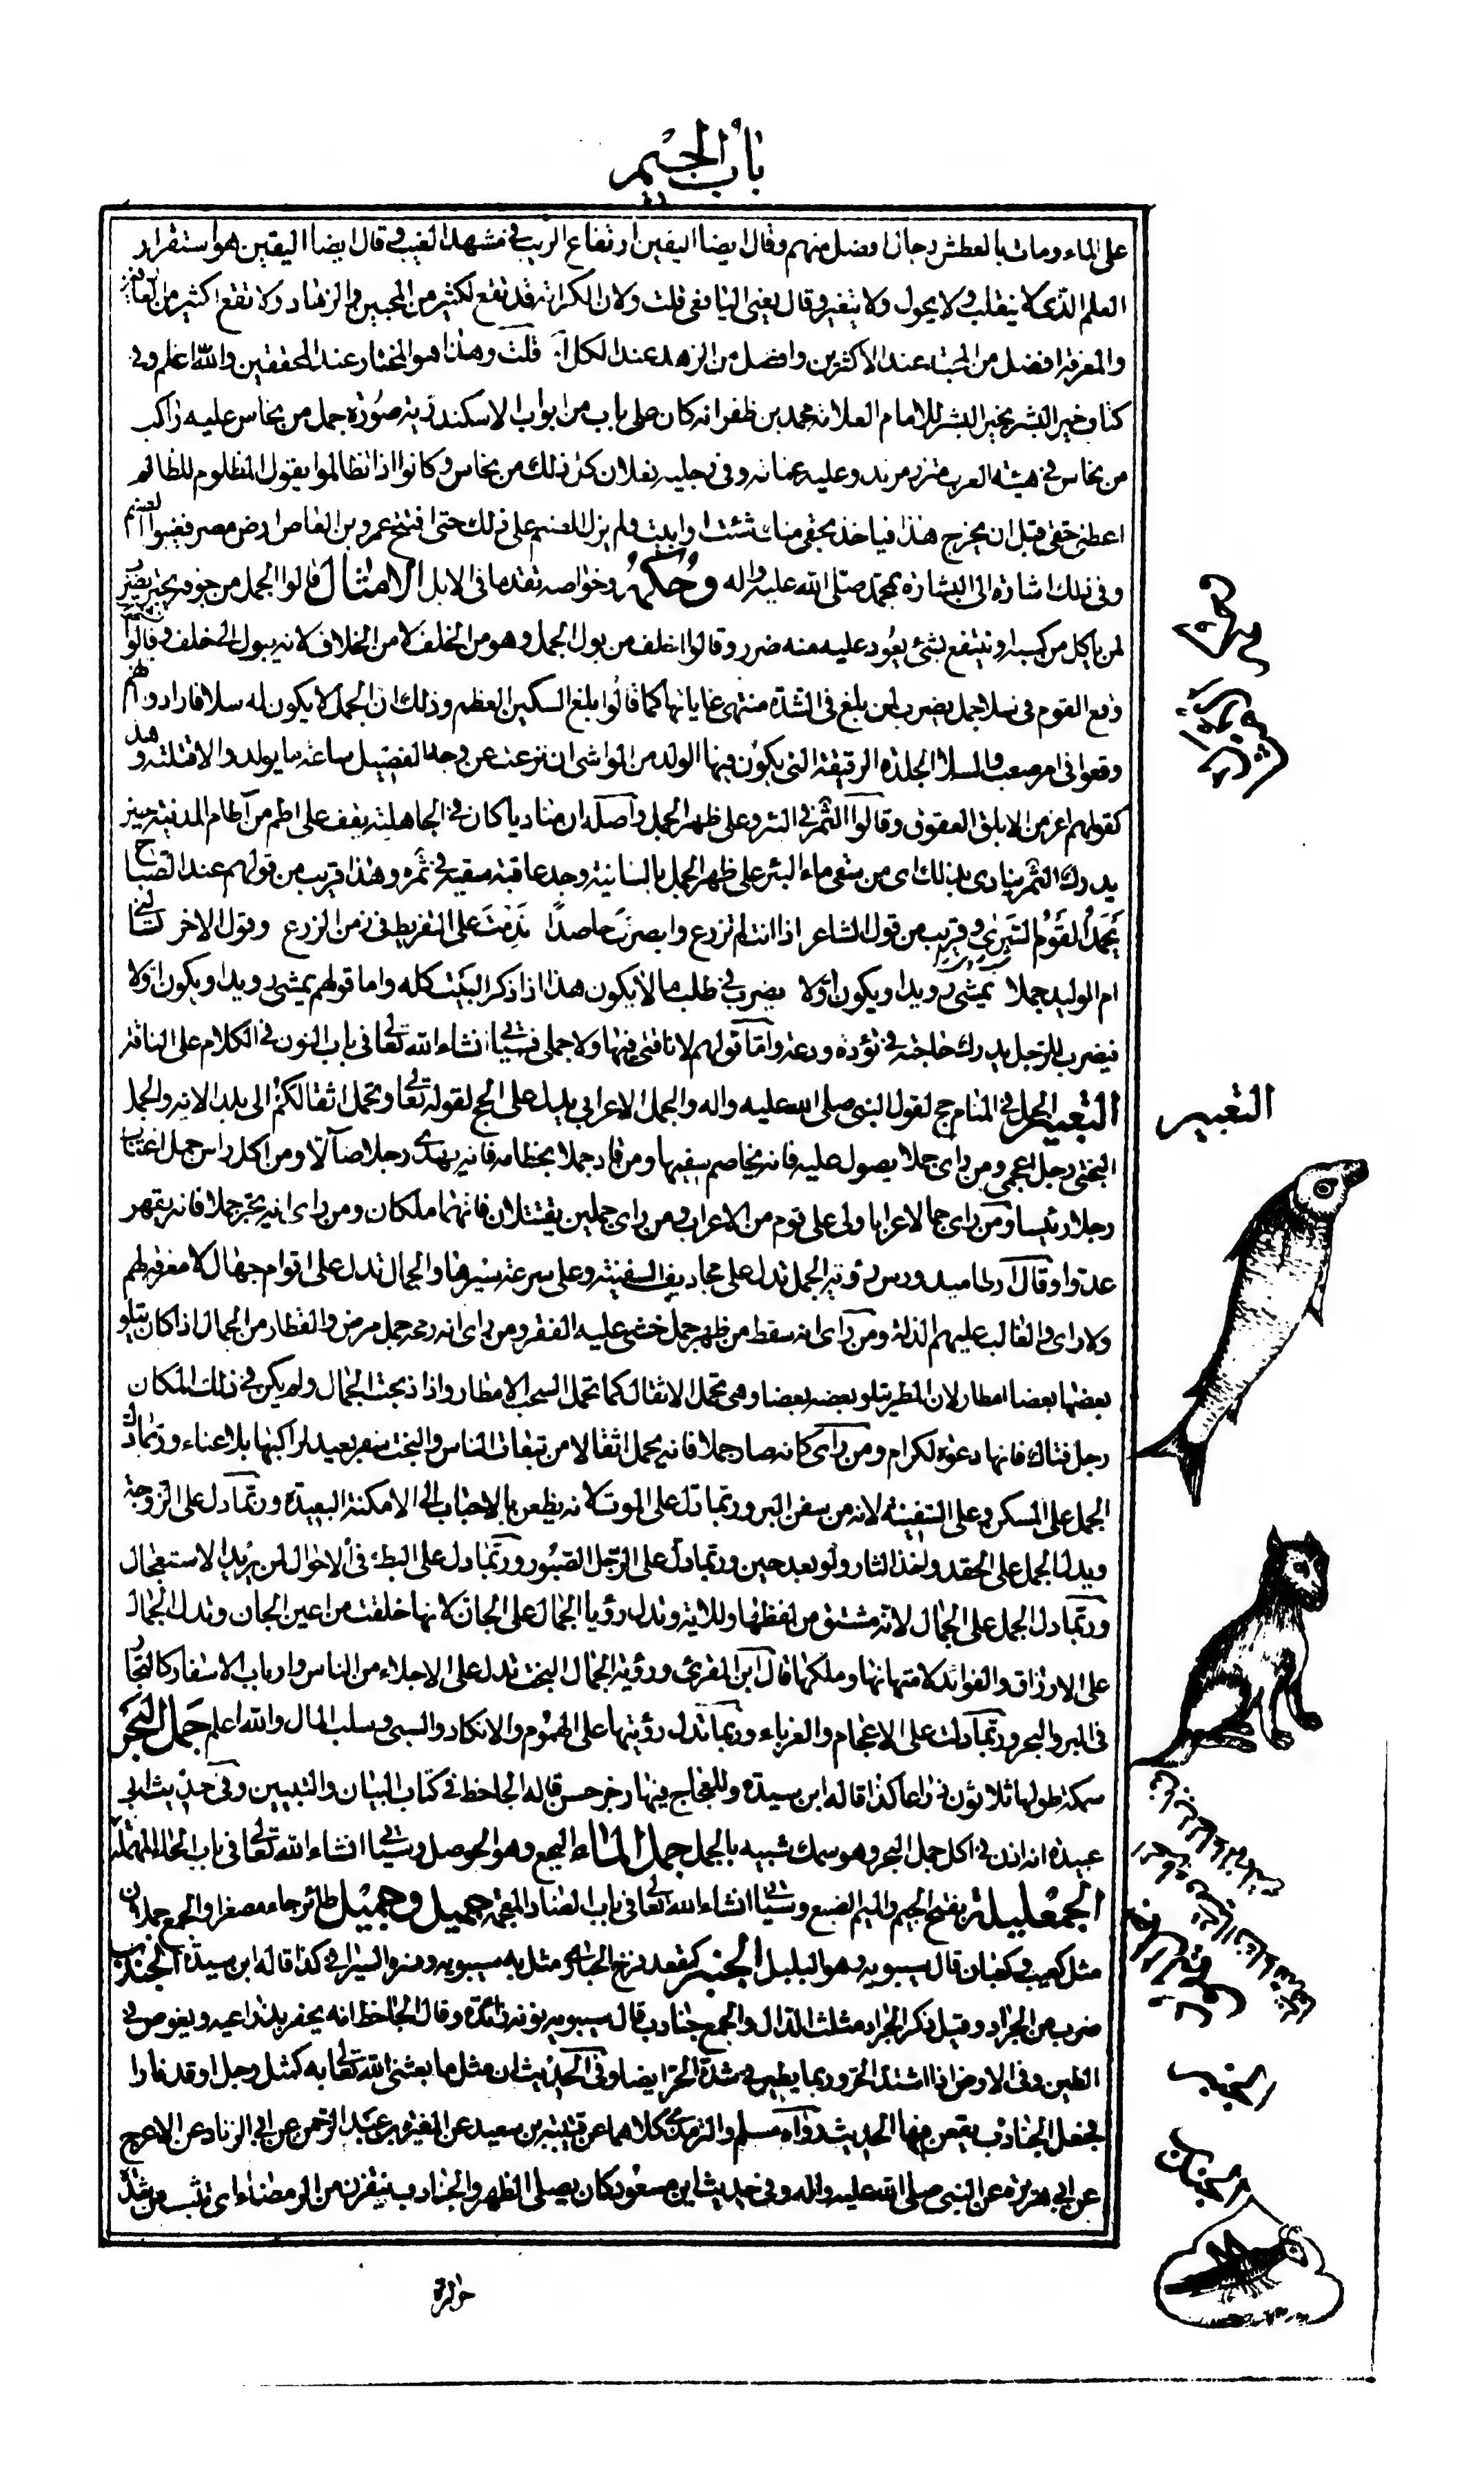 باب الجيم
على الماء ومات بالعطش رجال افضل منهم وقال ايضا اليقين ارتفاع الريب فى مشهد الغيب وقال ايضا اليقين هو استقرار
العلم الذى لا ينقلب ولا يحول ولا يتغير وقال يعنى اليافعى قلت ولان الكرامة قد تقع لكثير من المحبين والزهاد ولا تقع لكثير من العارفين
والمعرفة افضل من المحبة عند الاكثرين وافضل من الزهد عند الكل قلت وهذا هو المختار عند المحققين والله اعلم وفى
كتاب خير البشر بخير البشر للامام العلامة محمد بن ظفر انه كان على باب من ابواب الاسكندرية صورة جمل من نحاس عليه راكب
من نحاس فى هيئة العرب متزر مرتد وعليه عمامة وفى رجليه نعلان كل ذلك من نحاس وكانوا اذا تظالموا يقول المظلوم للظالم
اعطنى حقى قبل ان يخرج هذا فياخذ بحقى منك شئت او ابيت ولم يزل الصنم على ذلك حتى افتتح عمرو بن العاص ارض مصر فغيبوا الصنم
وفى ذلك اشارة الى البشارة بمحمد صلى الله عليه واله وحكمه وخواصه تقدما فى الابل الامثال قالوا الجمل من جوفه يجتر يضرب
لمن ياكل من كسبه او ينتفع بشئ يعود عليه منه ضرر وقالوا اخلف من بول الجمل وهو من الخلف لا من الخلاف لانه يبول الى خلف وقالوا
وقع القوم فى سلا جمل يضرب لمن بلغ فى الشدة منتهى غاياتها كما قالوا بلغ السكين العظم وذلك ان الجمل لا يكون له سلا فارادوا انهم
وقعوا فى امر صعب والسلا الجلدة الرقيقة التى يكون فيها الولد من المواشى ان نزعت عن وجه الفصيل ساعة ما يولد والا قتلته وهذا
كقولهم اعز من الابلق العقوق وقالوا الثمر فى البئر وعلى ظهر الجمل واصله ان مناديا كان فى الجاهلية يقف على اطم من آطام المدينة حين
يدرك الثمر ينادى بذلك اى من سقى ماء البئر على ظهر الجمل بالسانية وجد عاقبة سقيه فى ثمره وهذا قريب من قولهم عند الصباح
يحمد القوم السرى وقريب من قول الشاعر اذا انت لم تزرع وابصرت حاصدا ندمت على التفريط فى زمن الزرع وقول الاخر
ام الوليد جملا يمشى رويدا ويكون اولا يضرب فى طلب ما لا يكون هذا اذا ذكر البيت كله واما قولهم يمشى رويدا ويكون اولا
فيضرب للرجل يدرك حاجته فى تؤدة ودعة واما قولهم لا ناقتى فيها ولا جملى فسياتى انشاء الله تعالى فى باب النون فى الكلام على الناقة
التعبير الجمل فى المنام حج لقول النبى صلى الله عليه واله والجمل الاعرابى يدل على الحج لقوله تعالى وتحمل اثقالكم الى بلد الاية والجمل
البختى رجل اعجمى ومن راى جملا يصول عليه فانه يخاصم سفيها ومن قاد جملا بخطامه فانه يهدى رجلا ضالا ومن اكل راس جمل اغتاب
رجلا رئيسا ومن راى جمالا عرابا ولى على قوم من الاعراب ومن راى جملين يقتتلان فانهما ملكان ومن راى انه يجر جملا فانه يقهر
عدوا وقال ارطاميدورس رؤية الجمل تدل على مجاديف السفينة وعلى سرعة سيرها والجمال تدل على اقوام جهال لا معرفة لهم
ولا راى والغالب عليهم الذلة ومن راى انه سقط من ظهر جمل خشى عليه الفقر ومن راى انه رمحه جمل مرض والقطار من الجمال اذا كان يتلو
بعضها بعضا امطار لان المطر يتلو بعضه بعضا وهى تحمل الاثقال كما تحمل السحب الامطار واذا ذبحت الجمال ولم يكن فى ذلك المكان
رجل فتاك فانها دعوة لكرام ومن راى كانه صار جملا فانه يحمل اثقالا من تبعات الناس والبخت سفر بعيد لراكبها بلا عناء وربما دل
الجمل على المسكن وعلى السفينة لانه من سفن البر وربما دل على الموت لانه يظعن بالاحباب الى الامكنة البعيدة وربما دل على الزوجة
ويدل الجمل على الحقد واخذ الثار ولو بعد حين وربما دل على الرجل الصبور وربما دل على البطء فى الاحوال لمن يريد الاستعجال
وربما دل الجمل على الجمال لانه مشتق من لفظها وللاية وتدل رؤيا الجمال على الجان لانها خلقت من اعين الجان وتدل الجمال
على الارزاق والفوائد لامتهانها وملكها قال ابن المقرئ ورؤية الجمال البخت تدل على الاجلاء من الناس وارباب الاسفار كالتجار
فى البر والبحر وربما دلت على الاعجام والغرباء وربما تدل رؤيتها على الهموم والانكاد والسبى وسلب المال والله اعلم جمل البحر
سمكة طولها ثلاثون ذراعا كذا قاله ابن سيدة وللعجاج فيها رجز حسن قاله الجاحظ فى كتاب البيان والتبيين وفى حديث ابى
عبيدة انه اذن فى اكل جمل البحر وهو سمك شبيه بالجمل جمل الماء البجع وهو الحوصل وسياتى انشاء الله تعالى فى باب الحاء المهملة
الجمعليلة بفتح الجيم والميم الضبع وسياتى انشاء الله تعالى فى باب الضاد المعجمة جميل وجميل طائر جاء مصغرا والجمع جملان
مثل كعيب وكعبان قال سيبويه وهو البلبل الجنبر كقعدد فرخ الحبارى مثل به سيبويه وفسره السيرافى كذا قاله ابن سيدة الجندب
ضرب من الجراد وقيل ذكر الجراد مثلث الدال والجمع جنادب قال سيبويه نونه زائدة وقال الجاحظ انه يحفر بذراعيه ويغوص فى
الطين وفى الارض اذا اشتد الحر وربما يطير فى شدة الحر ايضا وفى الحديث ان مثل ما بعثنى الله تعالى به كمثل رجل اوقد نارا
فجعل الجنادب يقعن فيها الحديث رواه مسلم والترمذى كلاهما عن قتيبة بن سعيد عن المغيرة بن عبد الرحمن عن ابى الزناد عن الاعرج
عن ابى هريرة عن النبى صلى الله عليه واله وفى حديث ابن مسعود كان يصلى الظهر والجنادب ينقزن من الرمضاء اى تثب من شدة
التعبير
حرارة